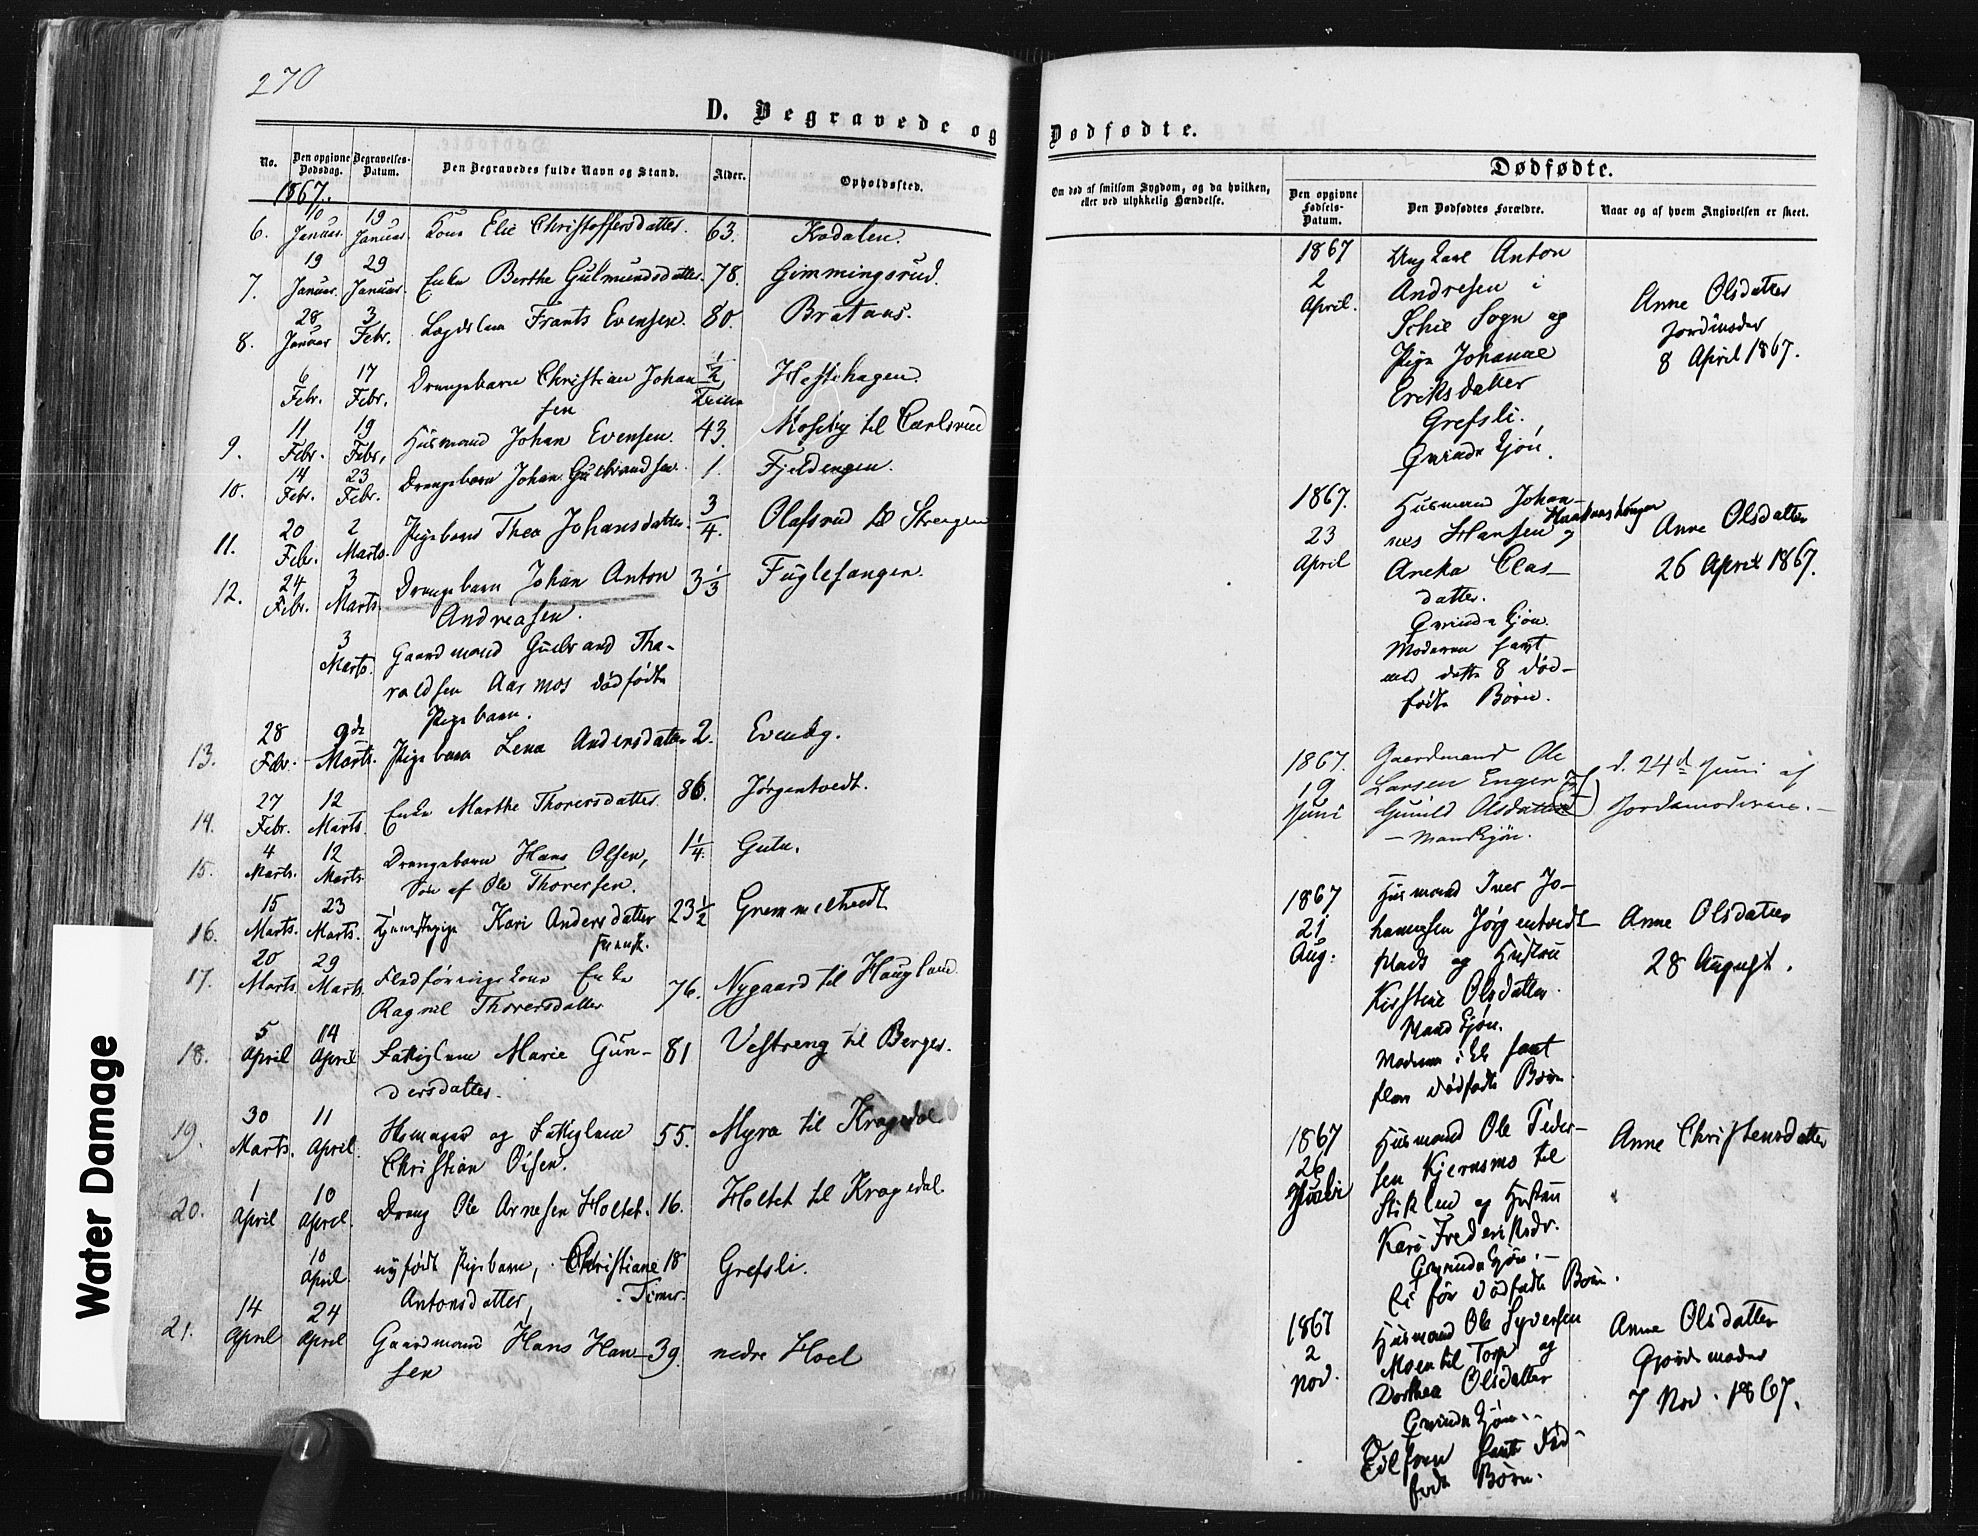 270
D. Begravede og
No.
Den opgivne Dødsdag.
Begravelses-Datum.
Den Begravedes fulde Navn og Stand.
Alder.
Opholdssted.
1867.
6. 10 Januar. 19 Januar. Kone Elie Christoffersdatter. 63. Kadalen.
7. 19 Januar. 29 Januar. Enke Berthe Gulmundsdatter. 78. Gimmingsrud.
8. 28 Januar 3 Febr. Lægdslem Frants Evensen. 80. Brataas.
6 Febr. 17 Febr. Drengebarn Christian Johan 1/2 Time Hestehagen.
sen
9. 11 Febr. 19 Febr. Husmand Johan Evensen. 43. Moseby til Carlsrud
10. 14 Febr. 23 Febr. Drengebarn Johan Gulbrandsen. 1. Fjeldengen.
11. 20 Febr. 2 Marts. Pigebarn Thea Johansdatter. 3/4. Olafsrud til Strengen
12. 24 Febr. 3 Marts. Drengebarn Johan Anton 3 1/3 Fuglefangen.
Andreasen.
3 Marts. Gaardmand Gulbrand Tha-
raldsen Aasmos dødfødte
Pigebarn.
13. 28 Febr. 9de Marts. Pigebarn Lena Andersdatter 2. Evenby.
14. 27 Febr. 12 Marts. Enke Marthe Thorersdatter. 86. Jørgentvedt.
15. 4 Marts. 12 Marts. Drengebarn Hans Olsen, 1 1/4. Gutu.
Søn af Ole Thorersen.
16. 15 Marts. 23 Marts. Tjenestepige Kari Andersdatter 23 1/2 Gremmeltvedt
Svensk.
17. 20 Marts. 29 Marts. Flodføringskone Enke
Ragnil Thorersdatter 76. Nygaard til Haugland
18. 5 April 14 April Fattiglem Marie Gun- 81 Vestreng til Berger.
dersdatter.
19. 30 Marts. 11 April. og Fattiglem 55. Myra til Kragedal
Christian Olsen.
20. 1 April 10 April. Dreng Ole Arnesen Holtet. 16. Holtet til Kragedal
10 April. nyfødt Pigebarn, Christiane 18 Grefsli.
Antonsdatter, Timer.
21. 14 April 24 April Gaardmand Hans Han- 39. nedre Hoel
sen
Dødfødte.
Om død af smitsom Sygdom, og da hvilken,
eller ved ulykkelig Hændelse.
Dødfødte.
Den opgivne Fødsels-Datum.
Den Dødfødtes Forældre.
Naar og af hvem Angivelsen er skeet.
1867 Ungkarl Anton
2 Andresen i
April. Schie Sogn og Anne Olsdatter
Pige Johanne Jordmoder
Eriksdatter 8 April 1867.
Grefsli.
Qvindekjøn.
1867. Husmand Johan-
23 nes Hansen og Anne Olsdatter
April Aneka Clas- 26 April 1867.
datter.
Qvindekjøn.
Moderen havt
med dette 8 død-
fødte Børn.
1867. Gaardmand Ole
19 Larsen Enger d. 24d Juni af
Juni Gunild Olsdatter Jordemoderen.
- Mandkjøn.
1867 Husmand Iver Jo-
21 hannesen Jørgentvedt- Anne Olsdatter
Aug. Plads og Hustru 28 August.
Kirstine Olsdatter.
Mandkjøn.
Moderen ikke havt
flere dødfødte Børn.
1867 Husmand Ole Peder- Anne Christensdatter
26 sen Kjernsmo til
Stiklen og Hustru
Kari Frederiksdr.
Qvindekjøn.-
Ei før dødfødte Børn.
1867 Husmand Ole Syversen Anne Olsdatter
2 Moen til Torp og Gjordemoder
Nov. Dorthea Olsdatter 7 Nov. 1867.
Qvindekjøn.-
havt død-
fødte Børn.
Water Damage